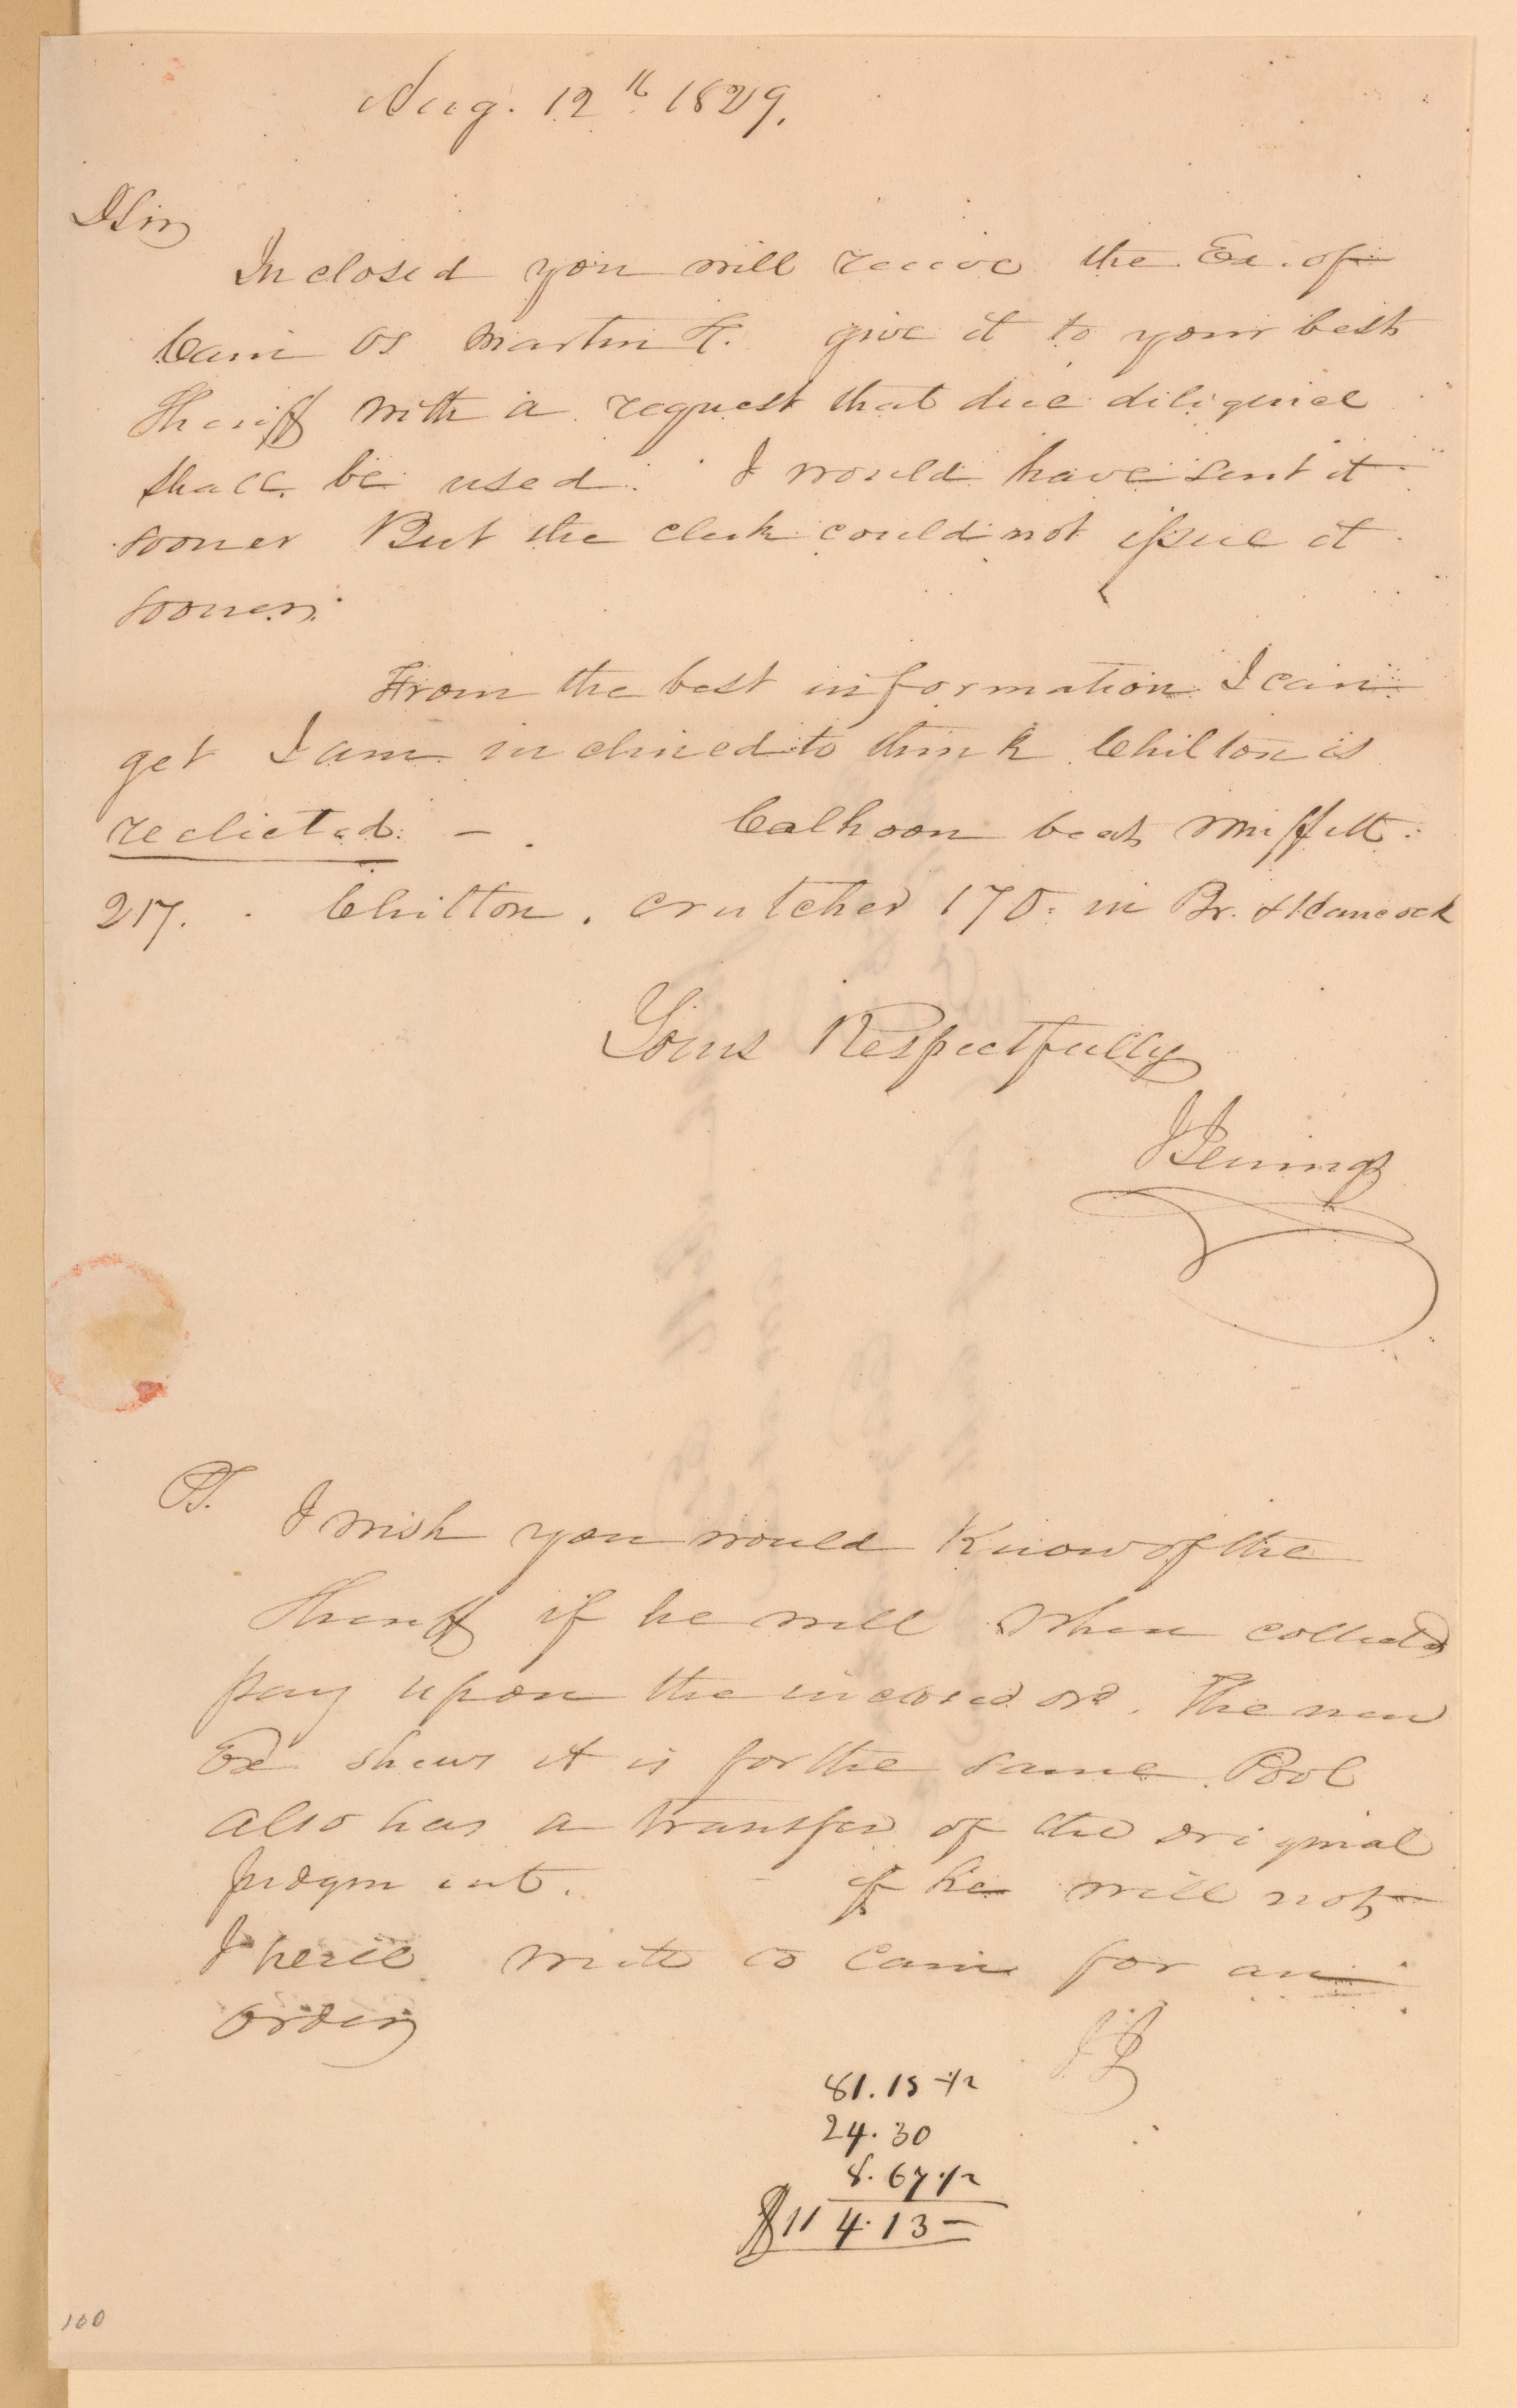 Aug. 12th 1829.
DSir
Inclosed you will receive the Ex. of
Cain vs Martin H. give it to your best
Sheriff with a request that due diligence
shall be used. I would have sent it
sooner But the clerk could not issue it
sooner.
From the best information I can
get I am inclined to think Chilton is
reelected. —. Calhoon beat
217. Chilton. Crutcher 170. in Br. & Hancock
Yours Respectfully
PS. I wish you would Know of the
Sheriff if he will when collected
pay upon the inclosed ord. The new
Ex shews it is for the same. Pool
also has a transfer of the original
Judgment. if he will not
I write to Cain for an
order
81.15 1/2
24.30
8.67 1/2
$114.13 -
100